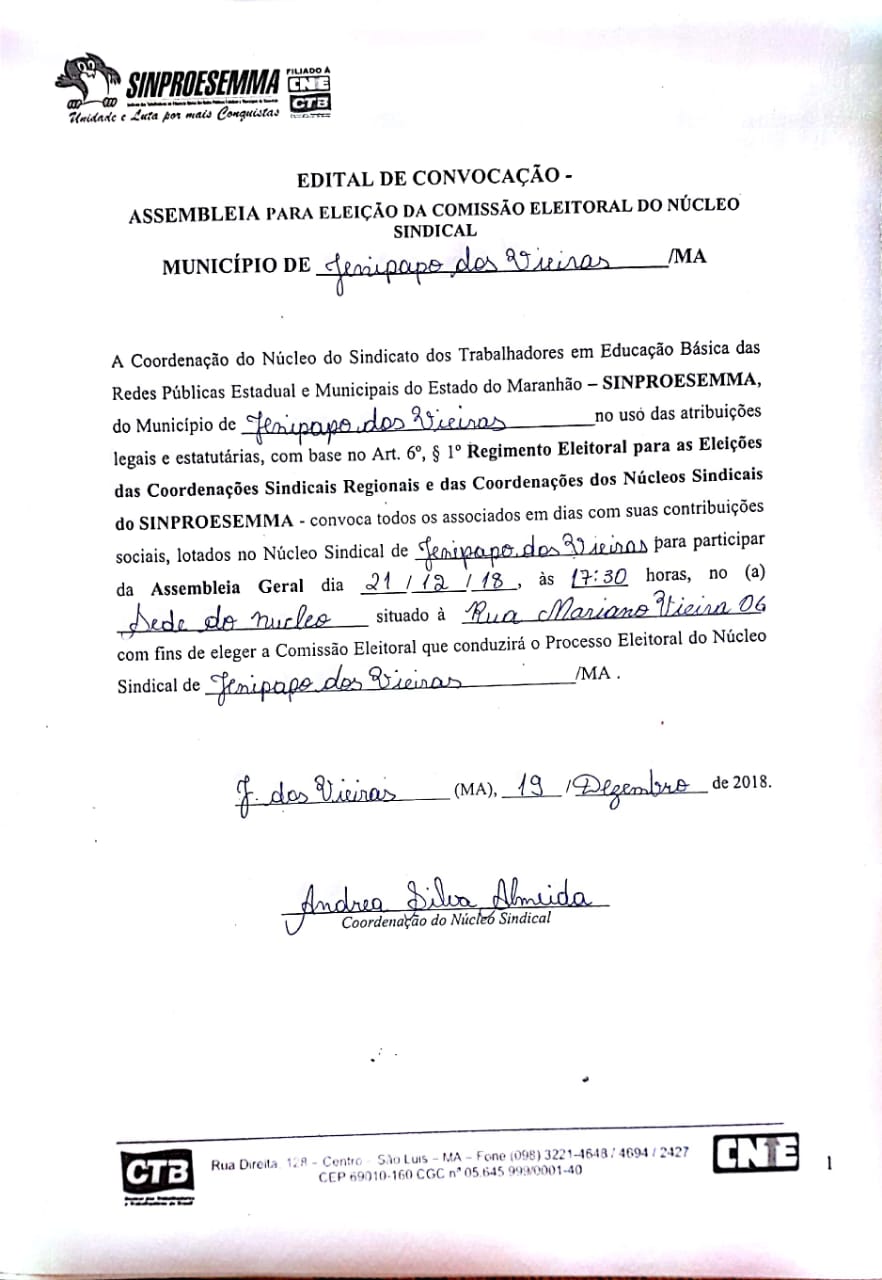 SINPROESEMMA
FILIADO À
CNTE
CTB
Unidade e Luta por mais Conquistas
EDITAL DE CONVOCAÇÃO -
ASSEMBLEIA PARA ELEIÇÃO DA COMISSÃO ELEITORAL DO NÚCLEO
SINDICAL
MUNICÍPIO DE Jenipapo dos Vieiras /MA
A Coordenação do Núcleo do Sindicato dos Trabalhadores em Educação Básica das
Redes Públicas Estadual e Municipais do Estado do Maranhão – SINPROESEMMA,
do Município de Jenipapo dos Vieiras no uso das atribuições
legais e estatutárias, com base no Art. 6º, § 1º Regimento Eleitoral para as Eleições
das Coordenações Sindicais Regionais e das Coordenações dos Núcleos Sindicais
do SINPROESEMMA - convoca todos os associados em dias com suas contribuições
sociais, lotados no Núcleo Sindical de Jenipapo dos Vieiras para participar
da Assembleia Geral dia 21/12/18, às 17:30 horas, no (a)
Sede do nucleo situado à Rua Mariano Vieira 06
com fins de eleger a Comissão Eleitoral que conduzirá o Processo Eleitoral do Núcleo
Sindical de Jenipapo dos Vieiras /MA .
J. dos Vieiras (MA), 19 /Dezembro de 2018.
Andrea Silva Almeida
Coordenação do Núcleo Sindical
CTB
Rua Direita, 128 – Centro – São Luis – MA – Fone (098) 3221-4648 / 4694 / 2427
CEP 69010-160 CGC nº 05.645 999/0001-40
CNTE
1